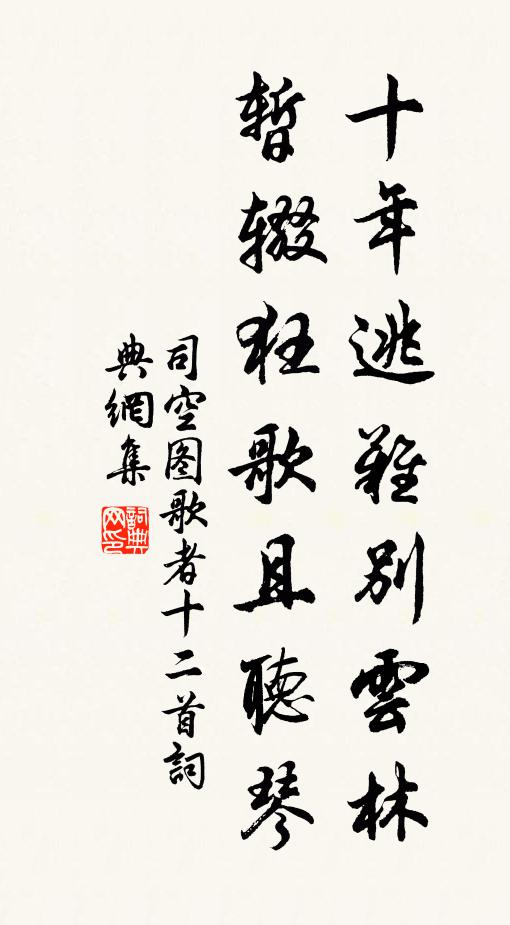 十年逃難別雲林
暫輟狂歌且聽琴
司空图歌者十二首詞
典網集
詞典
网印